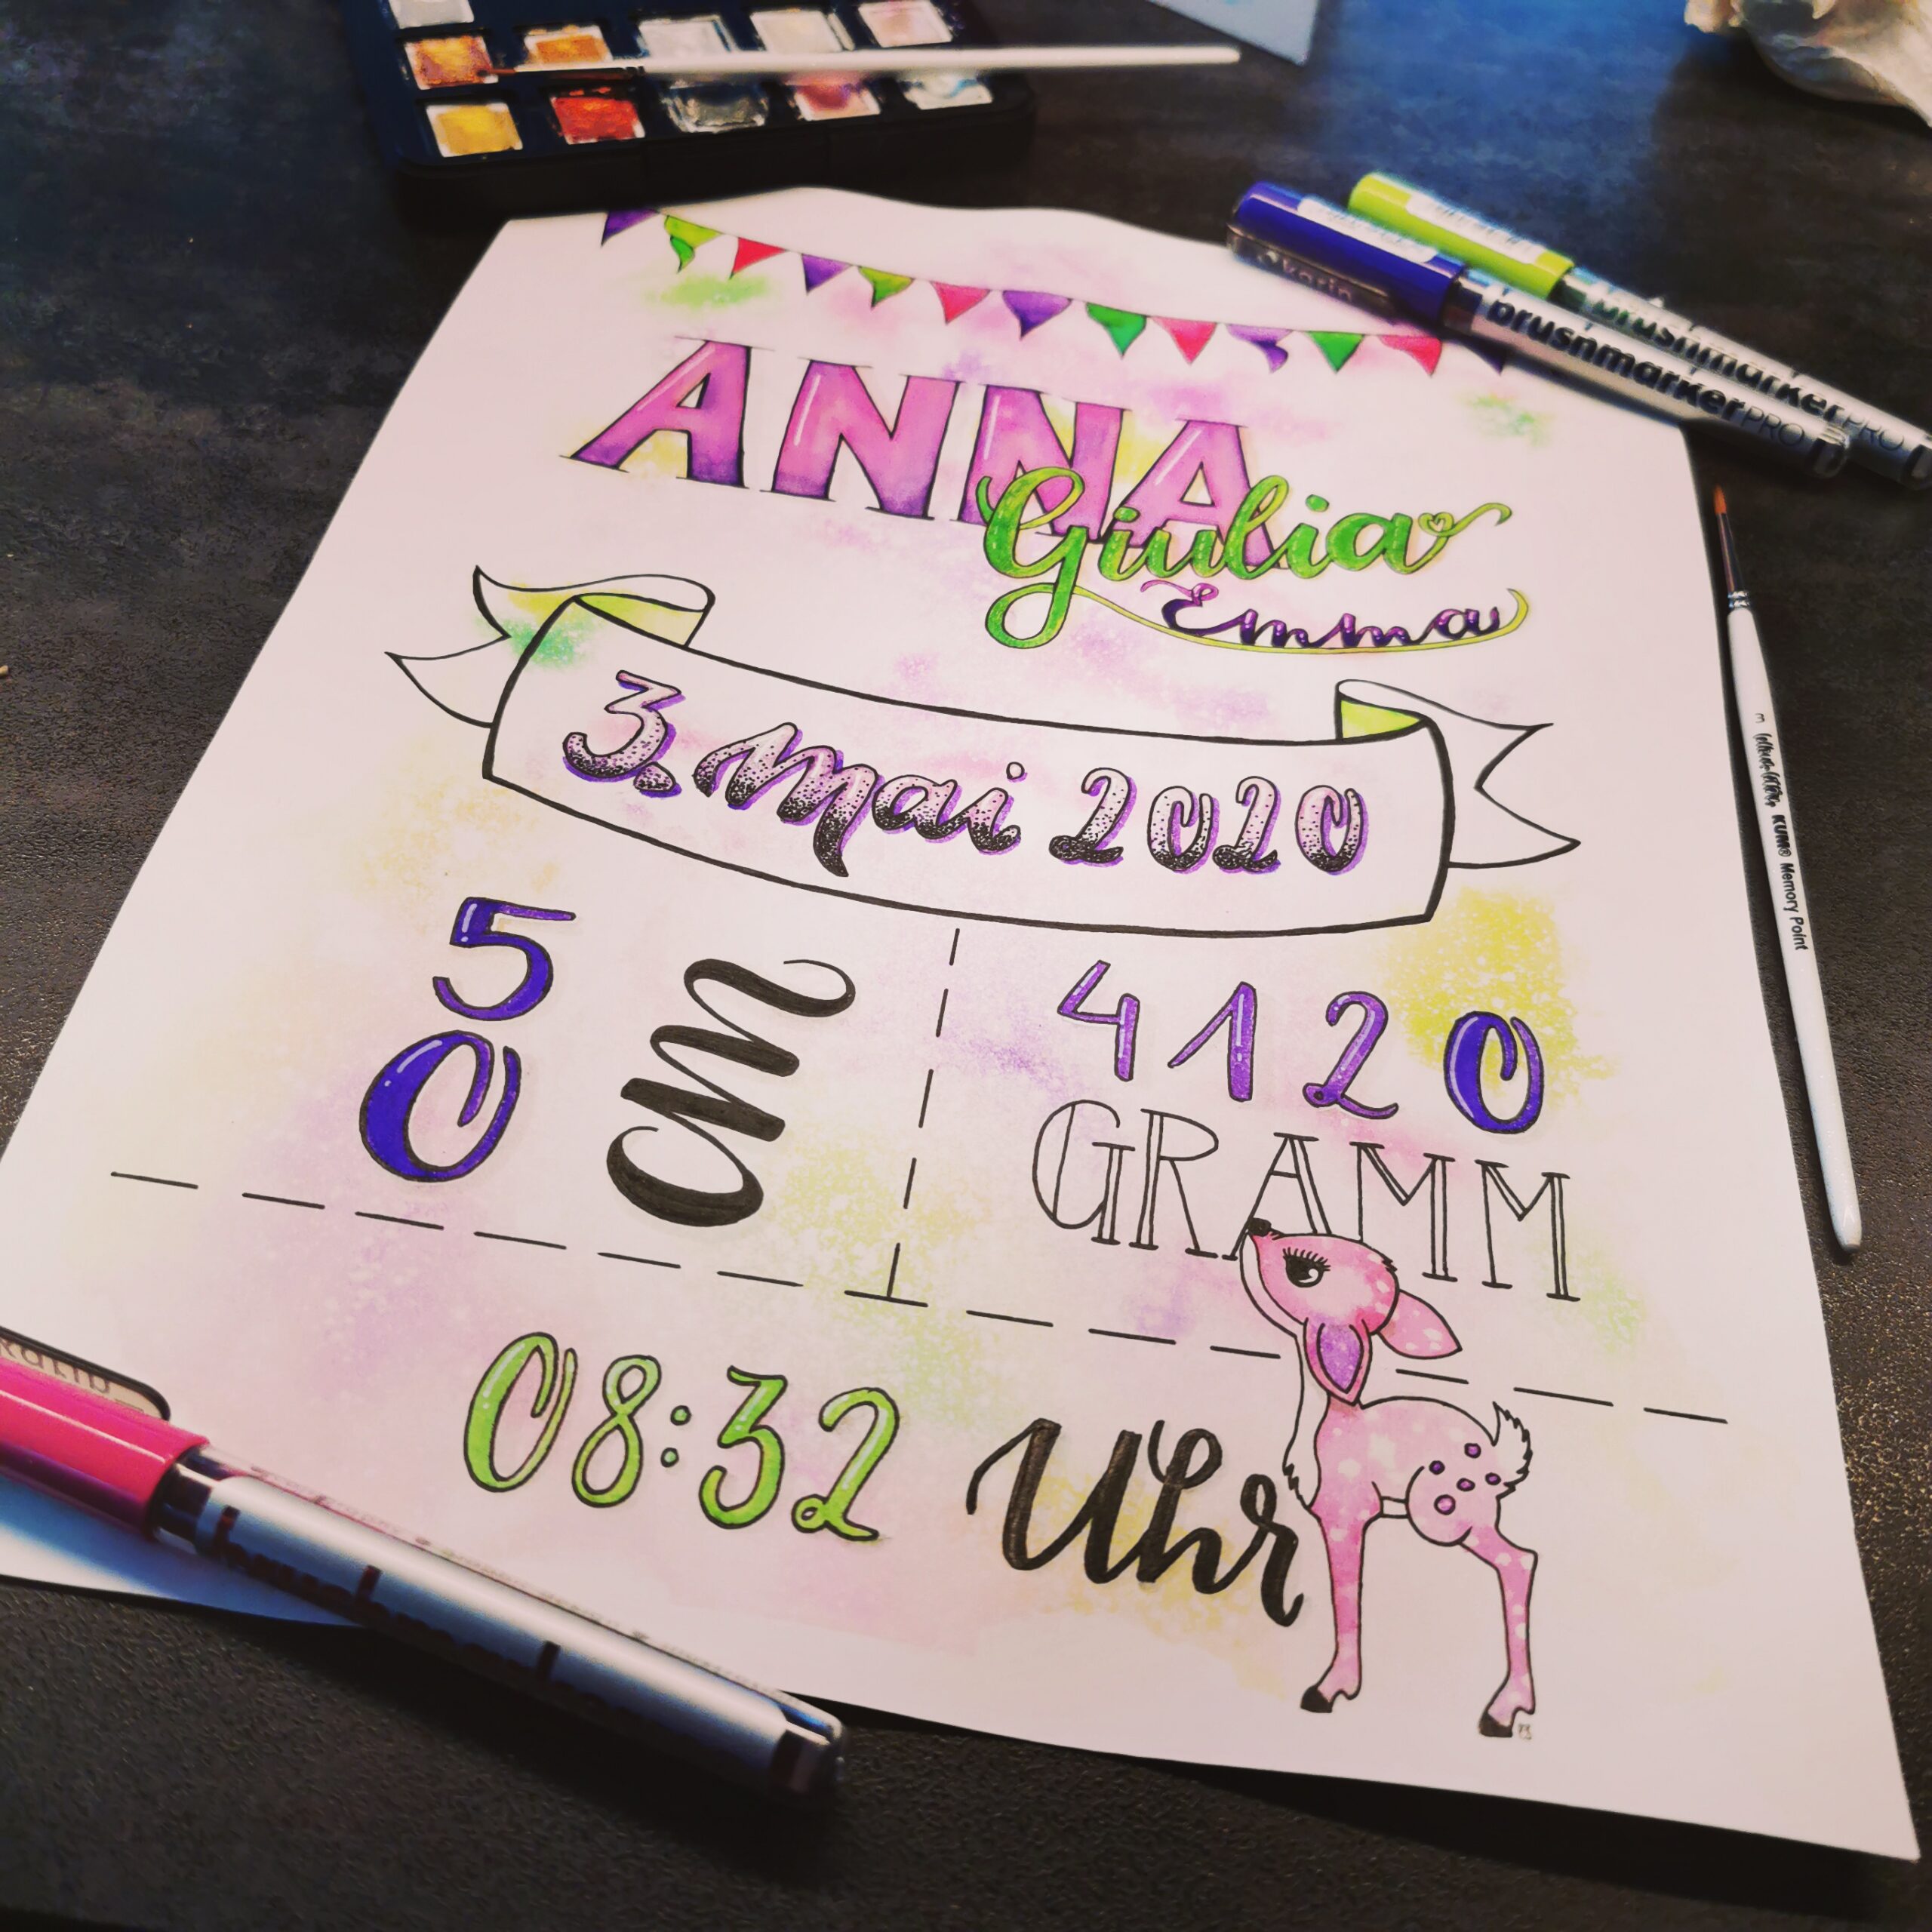 ANNA
Giulia
Emma
3. Mai 2020
50 cm
4120
GRAMM
08:32 Uhr
karin
brushmarker PRO
brushmarker PRO
KUM® Memory Point